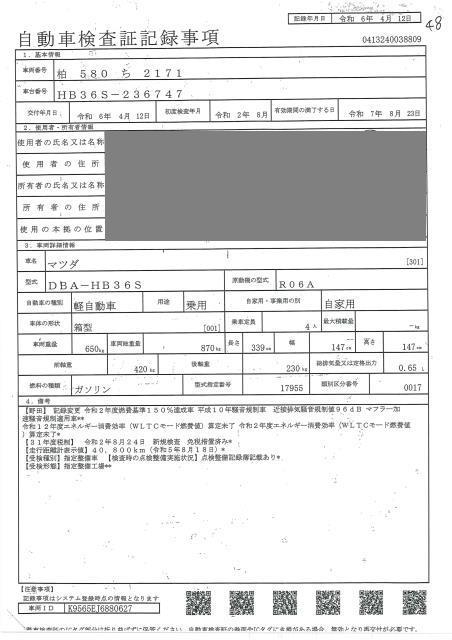 記録年月日 令和 6年 4月 12日
48
自動車検査証記録事項
0413240038809
1. 基本情報
車両番号 柏 580 ち 2171
車台番号 HB36S-236747
交付年月日 令和 6年 4月 12日 初度検査年月 令和 2年 8月 有効期間の満了する日 令和 7年 8月 23日
2. 使用者・所有者情報
使用者の氏名又は名称
使用者の住所
所有者の氏名又は名称
所有者の住所
使用の本拠の位置
3. 車両詳細情報
車名 マツダ [301]
型式 DBA-HB36S 原動機の型式 R06A
自動車の種別 軽自動車 用途 乗用 自家用・事業用の別 自家用
車体の形状 箱型 [001] 乗車定員 4人 最大積載量 -kg
車両重量 650kg 車両総重量 870kg 長さ 339cm 幅 147cm 高さ 147cm
前軸重 420kg 後軸重 230kg 総排気量又は定格出力 0.65 L
燃料の種類 ガソリン 型式指定番号 17955 類別区分番号 0017
4. 備考
【野田】 記録変更 令和2年度燃費基準150%達成車 平成10年騒音規制車 近接排気騒音規制値96dB マフラー加
速騒音規制適用車**
令和12年度エネルギー消費効率(WLTCモード燃費値)算定未了 令和2年度エネルギー消費効率(WLTCモード燃費値
)算定未了*
【31年度税制】 令和2年8月24日 新規検査 免税措置済み*
【走行距離計表示値】40,800km(令和5年8月18日)*
【受検種別】指定整備車 【検査時の点検整備実施状況】点検整備記録簿記載あり*
【受検形態】指定整備工場**
【注意事項】
記録事項はシステム登録時点の情報となります
車両ID K9565EJ6880627